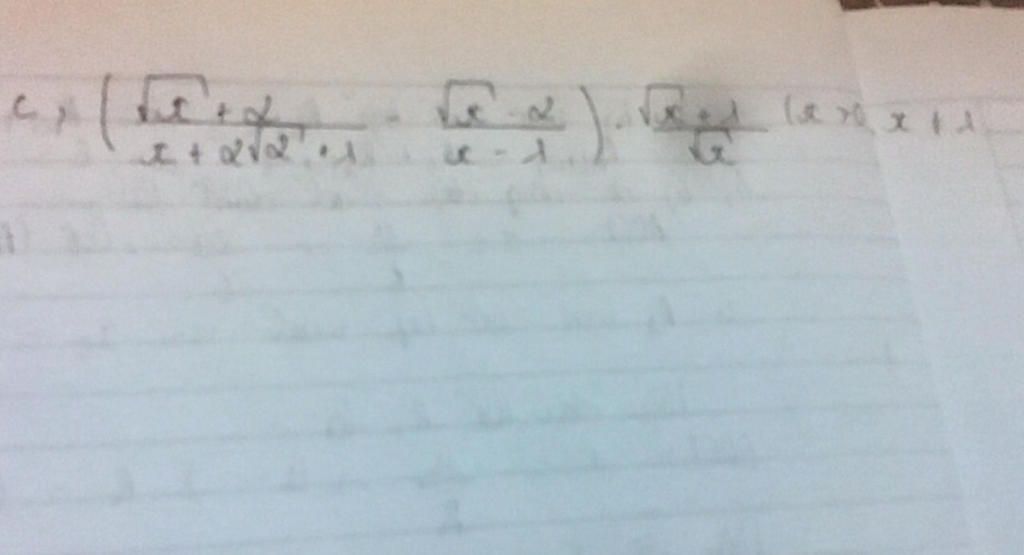 c, ( (√x + 2)/(x + 2√2 + 1) - (√x - 2)/(x - 1) ) . (√x + 1)/√x (x > 0, x ≠ 1